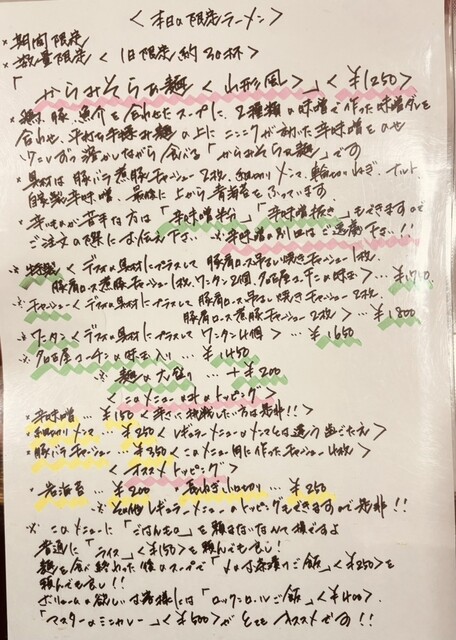 <本日の限定ラーメン>
* 期間限定
* 数量限定 < 1日限定 約30杯 >
「からみそらぁ麺 <山形風>」 <¥1250>
* 鶏、豚、魚介を合わせたスープに、2種類の味噌で作った味噌ダレを
合わせ、平打ち手揉み麺の上にニンニクが効いた辛味噌をのせ
少しずつ溶かしながら食べる「からみそらぁ麺」です
* 具材は豚バラ煮豚チャーシュー2枚、細切りメンマ、輪切りねぎ、ナルト
自家製辛味噌、最後に上から青海苔をふっています
* 辛いものが苦手な方は「辛味噌半分」「辛味噌抜き」もできますので
ご注文の際にお伝え下さい ※辛味噌の別皿はご遠慮下さい!!
※特製 <デフォの具材にプラスして 豚肩ロース吊るし焼きチャーシュー1枚、
豚肩ロース煮豚チャーシュー1枚、ワンタン2個、名古屋コーチンの味玉> …
※チャーシュー <デフォの具材にプラスして 豚肩ロース吊るし焼きチャーシュー2枚、
豚肩ロース煮豚チャーシュー2枚> … ¥1800
※ワンタン <デフォの具材にプラスして ワンタン4個> … ¥1650
※名古屋コーチンの味玉入り … ¥1450
※麺の大盛り … +¥200
<このメニューのみのトッピング>
* 辛味噌 … ¥150 <辛さに挑戦したい方は是非!!>
* 細切りメンマ … ¥250 <レギュラーメニューのメンマとは違う歯ごたえ>
* 豚バラチャーシュー … ¥350 <このメニュー用に作ったチャーシュー4枚>
<オススメトッピング>
岩海苔 ¥200 * 長ねぎ … ¥250
※その他レギュラーメニューのトッピングもできますので是非!!
※このメニューに「ごはんもの」を頼まないなんて損ですよ
普通に「ライス」<¥150>を頼んでも良し!
麺を食べ終わった後のスープで「〆のお茶漬けご飯」<¥250>を
頼んでも良し!!
ボリュームの欲しいお客様には「ロックンロールご飯」<¥400>、
「マスターのミニカレー」<¥500>がとてもオススメです!!